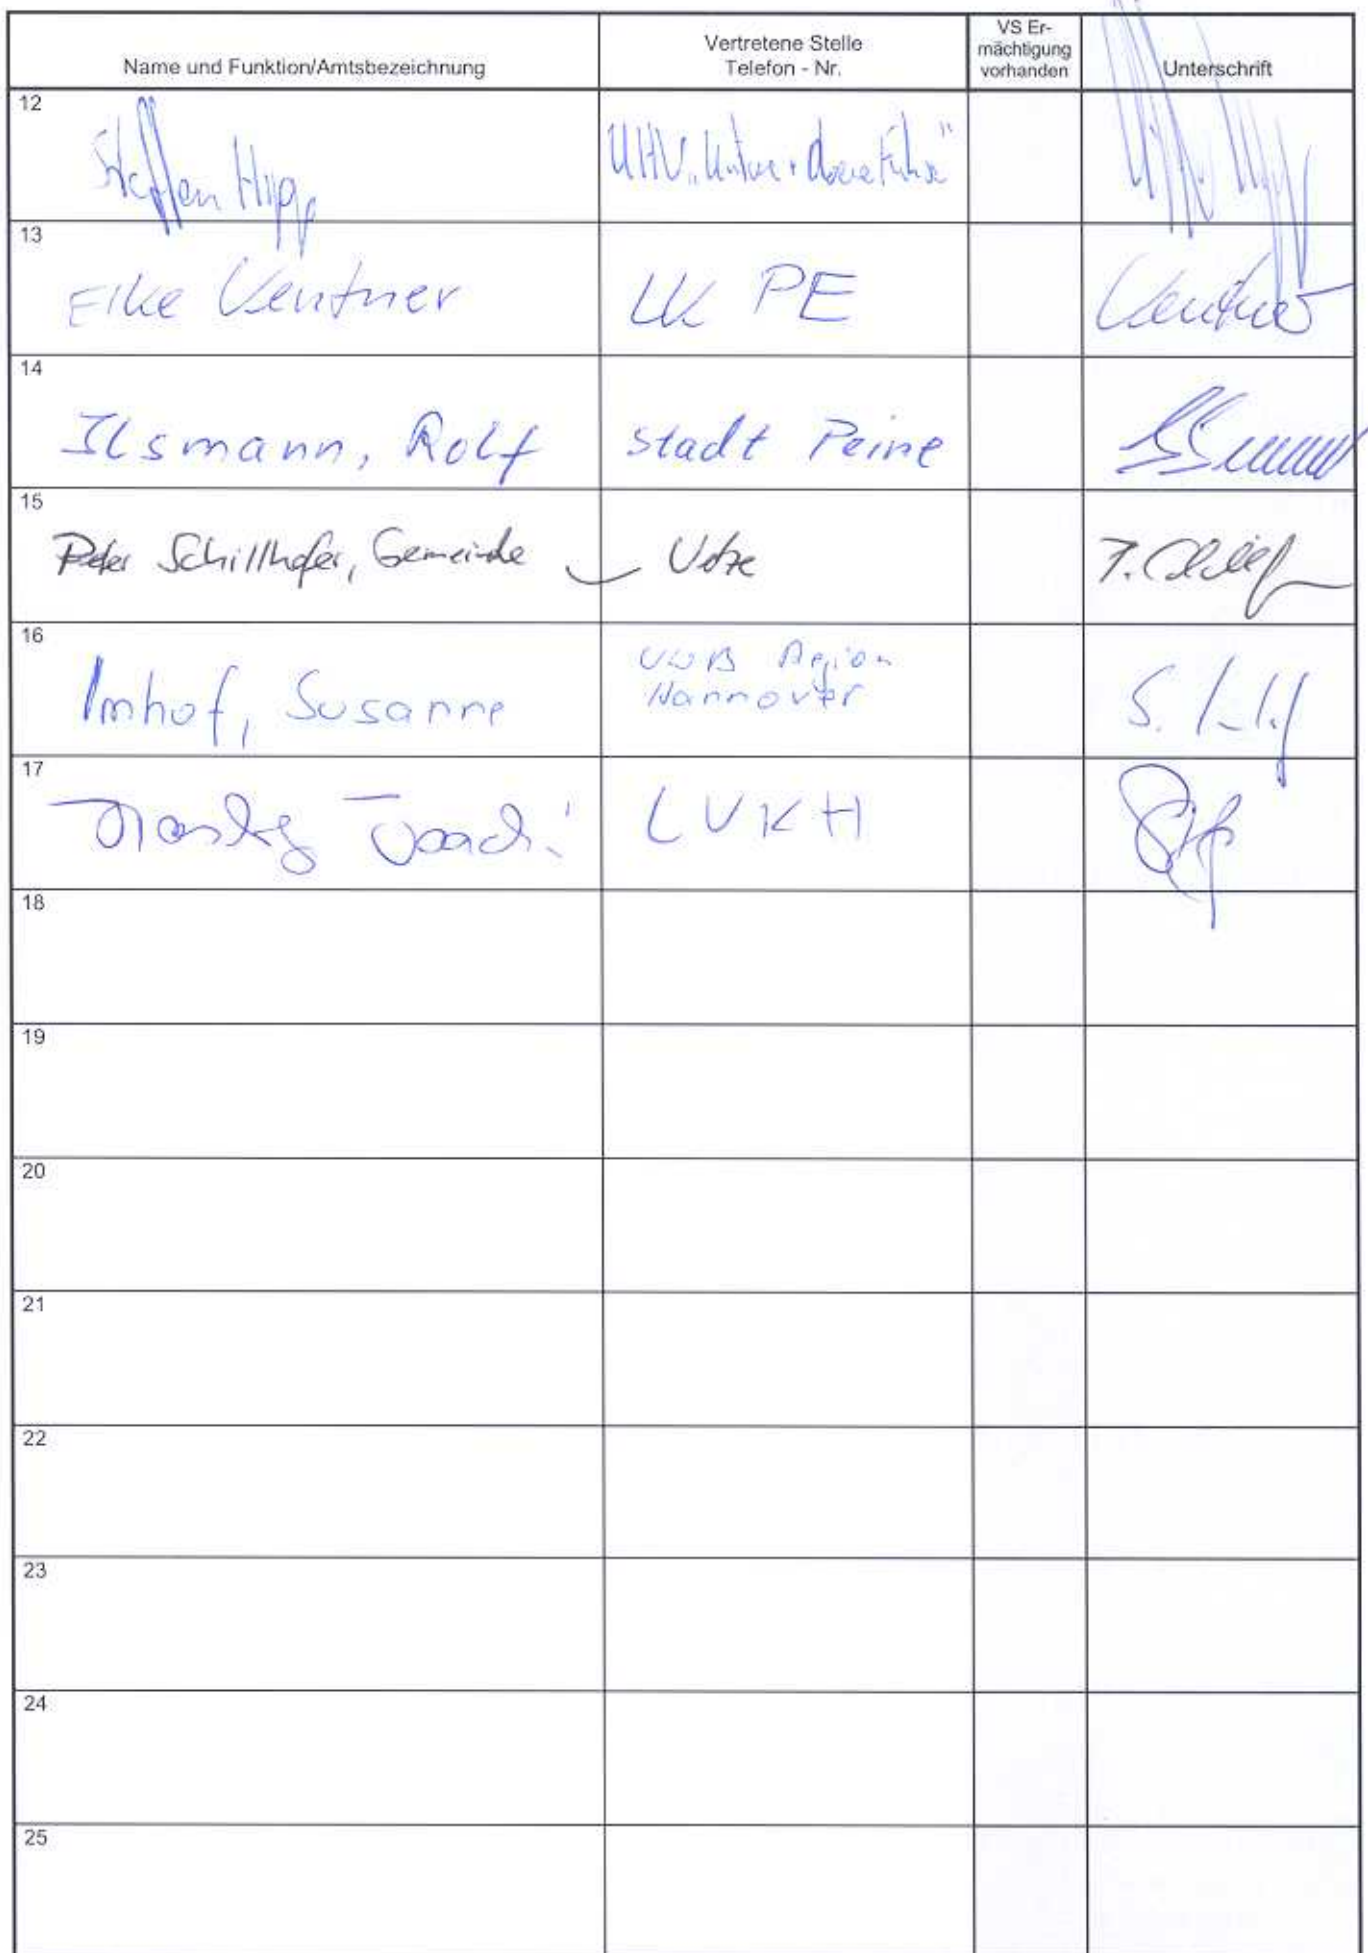 Name und Funktion/Amtsbezeichnung
Vertretene Stelle
Telefon - Nr.
VS Er-
mächtigung
vorhanden
Unterschrift
12
Steffen Hipp
UHV „Untere + Obere Fuhse"
13
Elke Kentner
LK PE
Kentner
14
Ilsmann, Rolf
Stadt Peine
15
Peter Schillhofer, Gemeinde
Uetze
16
Imhof, Susanne
UWB Region
Hannover
S.
17
LVKH
18
19
20
21
22
23
24
25